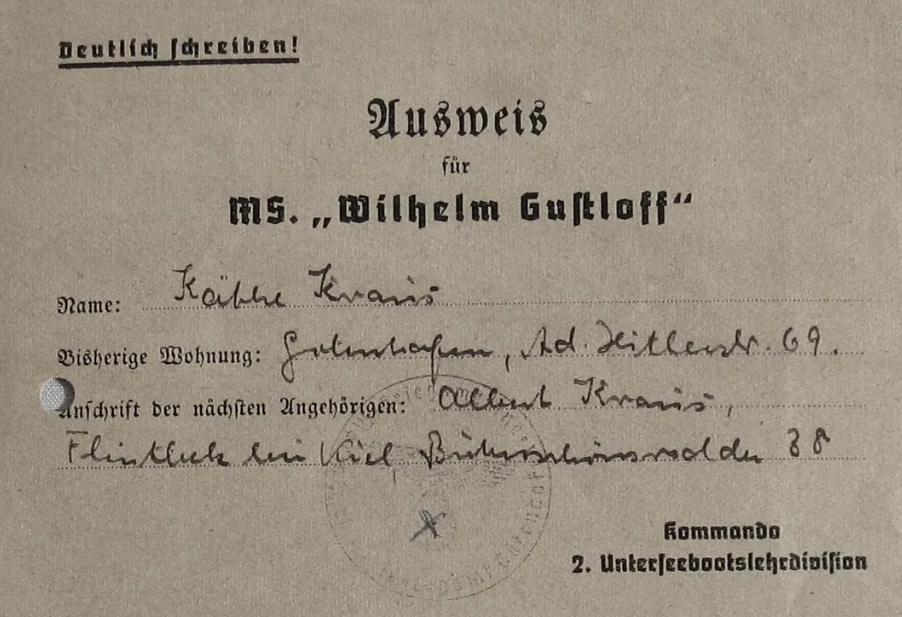 Deutlich schreiben!
Ausweis
für
MS. „Wilhelm Gustloff“
Name: Käthe Kraus
Bisherige Wohnung: Gotenhafen, Ad. Hitlerstr. 69.
Anschrift der nächsten Angehörigen: Albert Kraus,
Flintbek bei Kiel, 38
Kommando
2. Unterseebootslehrdivision